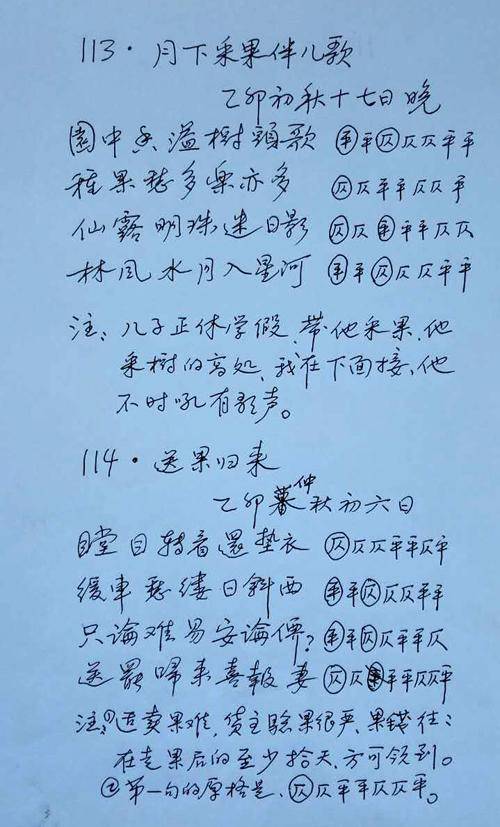 113·月下采果伴儿歌
乙卯初秋十七日晚
園中香溢樹頭歌 ㊥平㊀仄仄平平
種果愁多樂亦多 仄仄平平仄仄平
仙露明珠迷日影 仄仄平平平仄仄
林风水月入星河 平平仄仄仄平平
注：儿子正休学假，带他采果，他
采樹的高处，我在下面接，他
不时吼有歌声。
114·送果归来
乙卯仲秋初六日
目 轉看還墊衣 仄仄仄平平仄平
缓車愁缕日斜西 平平仄仄仄平平
只論难易安論價？平平仄仄平平仄
送罷歸來喜報妻 仄仄平平仄仄平
注：①适卖果难，货主験果很严，果錢往：
在走果后的至少拾天，方可领到。
②第一句的原格是，仄仄平平仄仄平。